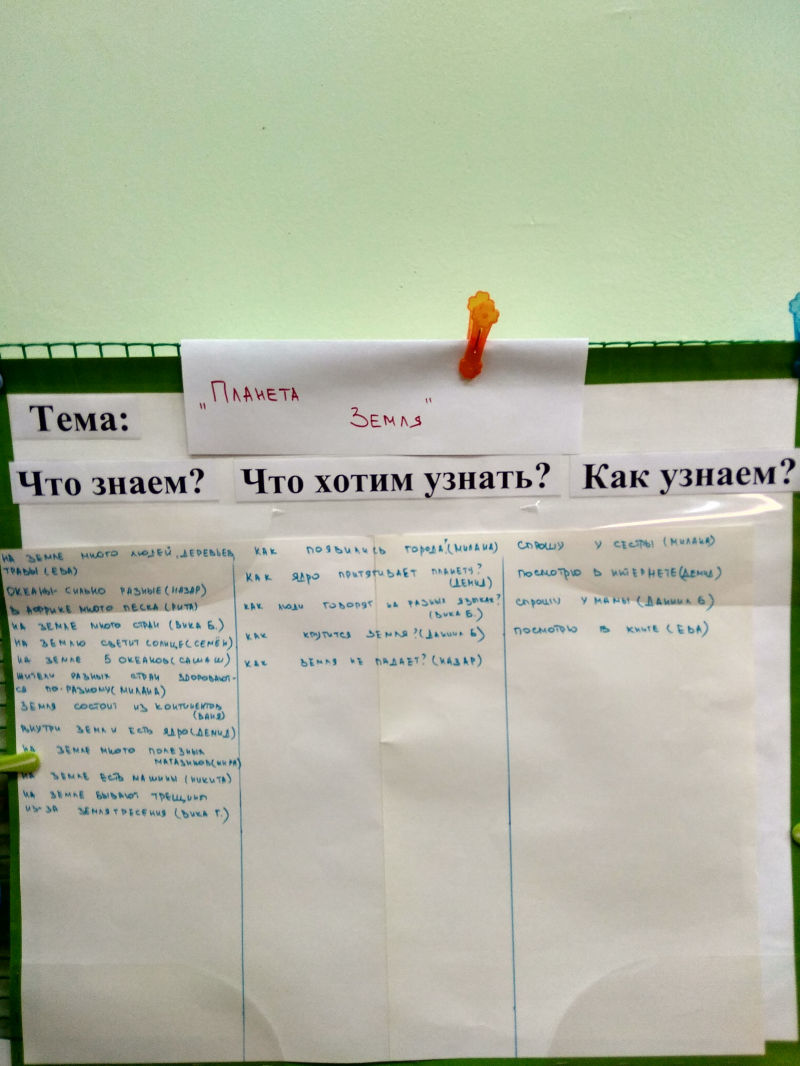 "Планета
Земля"
Тема:
Что знаем?
Что хотим узнать?
Как узнаем?
НА ЗЕМЛЕ МНОГО ЛЮДЕЙ, ДЕРЕВЬЕВ,
ТРАВЫ (ЕВА)
ОКЕАНЫ СИЛЬНО РАЗНЫЕ (НАЗАР)
В АФРИКЕ МНОГО ПЕСКА (РИТА)
НА ЗЕМЛЕ МНОГО СТРАН (ВИКА Б.)
НА ЗЕМЛЮ СВЕТИТ СОЛНЦЕ (СЕМЁН)
НА ЗЕМЛЕ 5 ОКЕАНОВ (САША Ш)
ЖИТЕЛИ РАЗНЫХ СТРАН ЗДОРОВАЮТ-
СЯ ПО-РАЗНОМУ (МИЛАНА)
ЗЕМЛЯ СОСТОИТ ИЗ КОНТИНЕНТОВ
(ВАНЯ)
ВНУТРИ ЗЕМЛИ ЕСТЬ ЯДРО (ДЕМИД)
НА ЗЕМЛЕ МНОГО ПОЛЕЗНЫХ
МАГАЗИНОВ (КИРА)
НА ЗЕМЛЕ ЕСТЬ МАШИНЫ (НИКИТА)
НА ЗЕМЛЕ БЫВАЮТ ТРЕЩИНЫ
ИЗ-ЗА ЗЕМЛЯТРЕСЕНИЯ (ВИКА Г.)
КАК ПОЯВИЛИСЬ ГОРОДА? (МИЛАНА)
КАК ЯДРО ПРИТЯГИВАЕТ ПЛАНЕТУ?
(ДЕМИД)
КАК ЛЮДИ ГОВОРЯТ НА РАЗНЫХ ЯЗЫКАХ?
(ВИКА Б.)
КАК КРУТИТСЯ ЗЕМЛЯ? (ДАНИИЛ Б)
КАК ЗЕМЛЯ НЕ ПАДАЕТ? (НАЗАР)
СПРОШУ У СЕСТРЫ (МИЛАНА)
ПОСМОТРЮ В ИНТЕРНЕТЕ (ДЕМИД)
СПРОШУ У МАМЫ (ДАНИИЛ Б)
ПОСМОТРЮ В КНИГЕ (ЕВА)